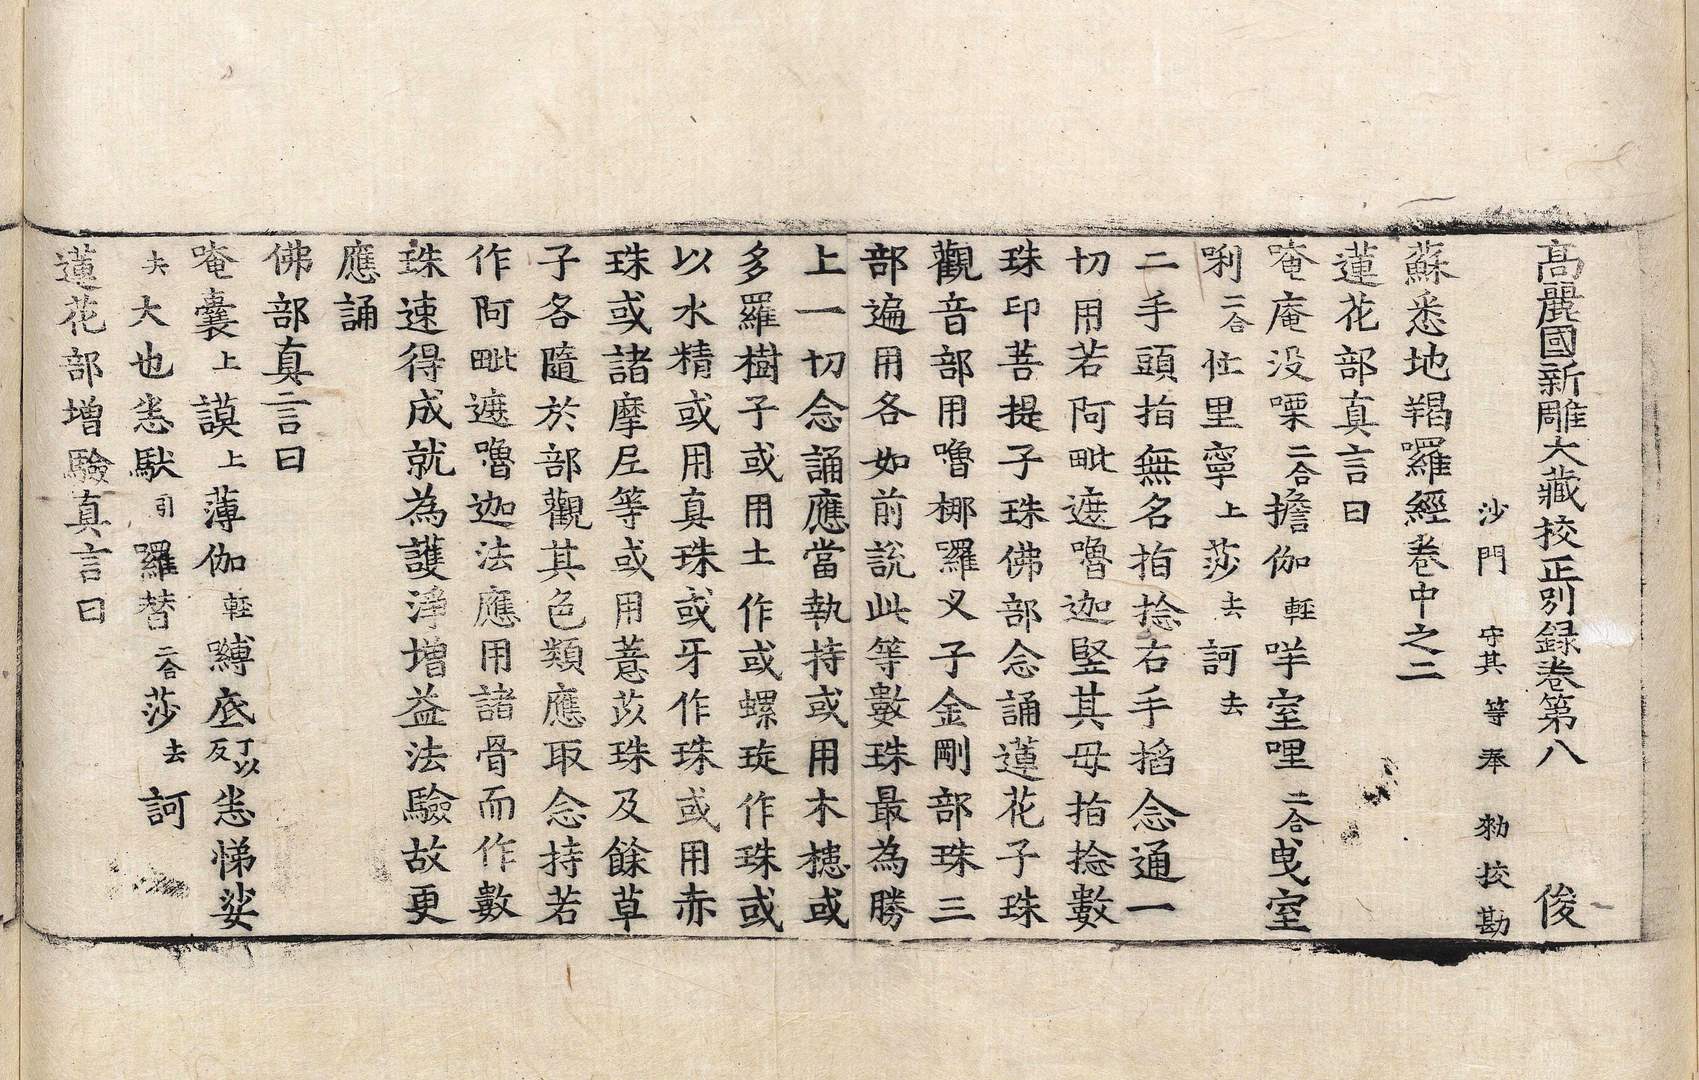 高麗國新雕大藏校正別録卷第八 俊
沙門 守其 等奉 勑挍勘
蘇悉地羯囉經卷中之二
蓮花部真言曰
唵庵没㗚二合擔伽輕咩室哩二合曵室
唎二合仛里寧上莎去訶去
二手頭指無名指捻右手搯念通一
切用若阿毗遮嚕迦竪其母指捻數
珠印菩提子珠佛部念誦蓮花子珠
觀音部用嚕梛囉叉子金剛部珠三
部遍用各如前説此等數珠最為勝
上一切念誦應當執持或用木槵或
多羅樹子或用土作或螺琁作珠或
以水精或用真珠或牙作珠或用赤
珠或諸摩尼等或用薏苡珠及餘草
子各隨於部觀其色類應取念持若
作阿毗遮嚕迦法應用諸骨而作數
珠速得成就為護淨增益法驗故更
應誦
佛部真言曰
唵囊上謨上薄伽輕嚩底丁以反悉悌娑
去大也悉馱引囉替二合莎去訶
蓮花部增驗真言曰